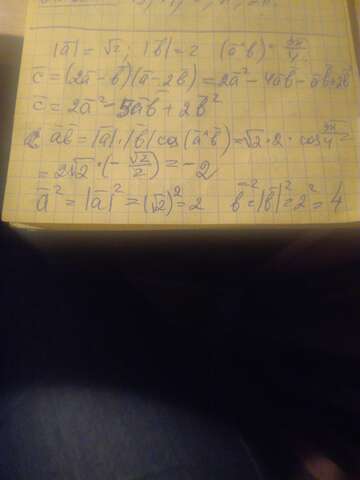 |a̅| = √2; |b̅| = 2 (a̅^b̅) = 3π/4
c̅ = (2a̅ - b̅)(a̅ - 2b̅) = 2a̅² - 4a̅b̅ - a̅b̅ + 2b̅²
c̅ = 2a̅² - 5a̅b̅ + 2b̅²
a̅b̅ = |a̅|·|b̅| cos(a̅^b̅) = √2·2·cos 3π/4 =
= 2√2·(-√2/2) = -2
a̅² = |a̅|² = (√2)² = 2 b̅² = |b̅|² = 2² = 4